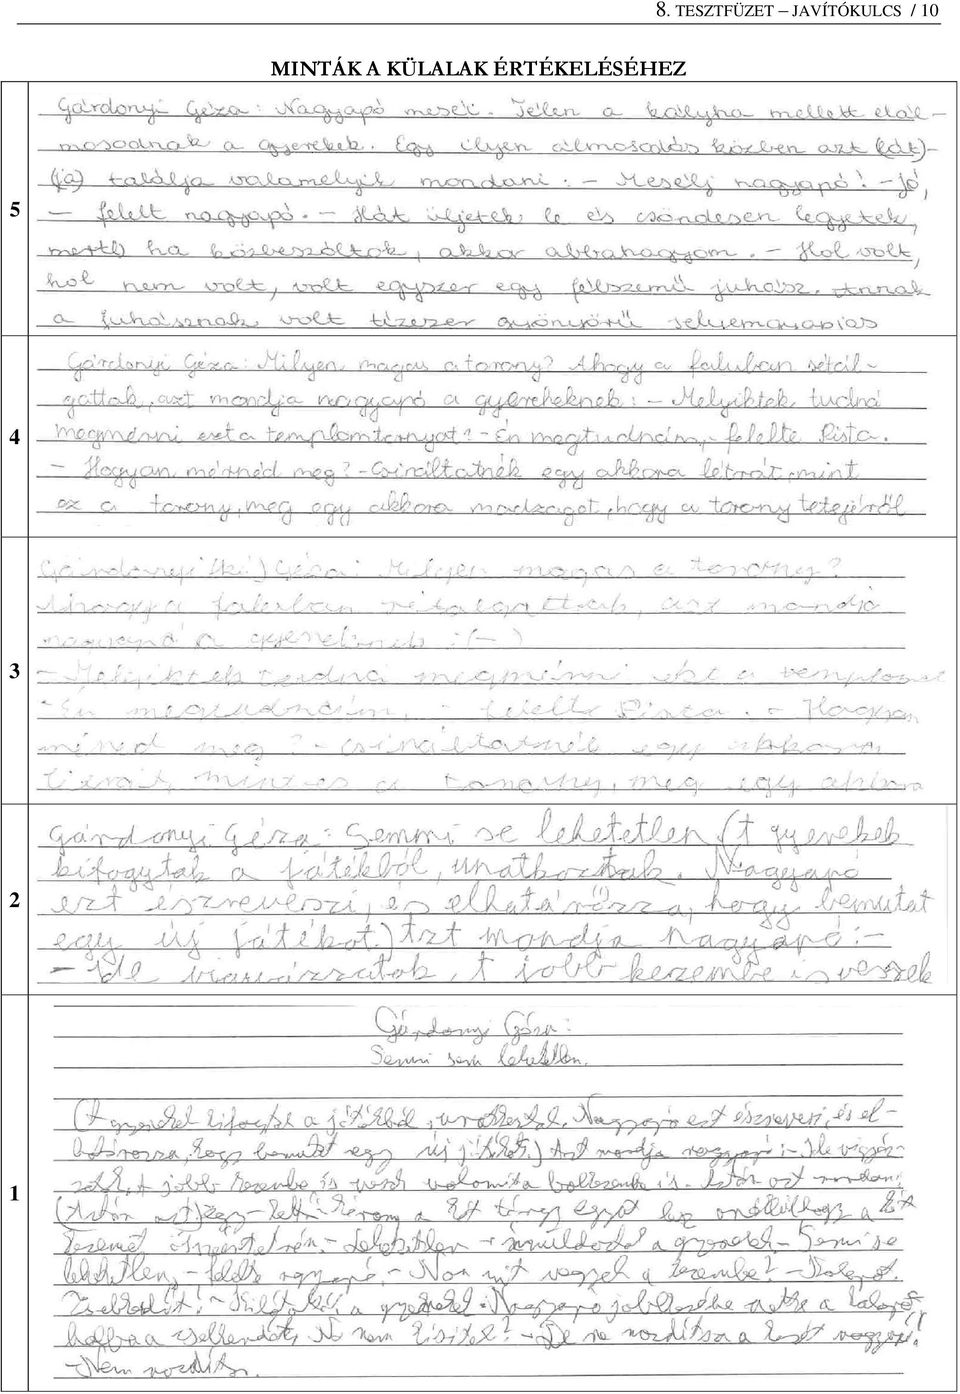 8. TESZTFÜZET – JAVÍTÓKULCS / 10
MINTÁK A KÜLALAK ÉRTÉKELÉSÉHEZ
5
Gárdonyi Géza: Nagyapó meséi. Télen a kályha mellett elál-
mosodnak a gyerekek. Egy ilyen álmosodás közben azt (lát)-
(ja) találja valamelyik mondani: – Mesélj nagyapó! – Jó,
– felelt nagyapó. – Hát üljetek le és csöndesen legyetek,
mert ha közbeszóltok, akkor abbahagyom. – Hol volt,
hol nem volt, volt egyszer egy félszemű juhász. Annak
a juhásznak volt tízezer gyönyörű selyemgyapjas
4
Gárdonyi Géza: Milyen magas a torony? Ahogy a faluban sétál-
gattak, azt mondja nagyapó a gyerekeknek: – Melyiktek tudná
megmérni ezt a templomtornyot? – Én megtudnám, – felelte Pista.
– Hogyan mérnéd meg? – Csináltatnék egy akkora létrát, mint
ez a torony, meg egy akkora madzagot, hogy a torony tetejéről
3
Géza: Milyen magas a torony?
Ahogy a faluban sétálgattak, azt mondja
nagyapó a gyereknek: (–)
– Melyiktek tudná megmérni ezt a templom
– Én megtudnám, – felelte Pista. – Hogyan
mérnéd meg? – Csináltatnék egy akkora
létrát, mint ez a torony, meg egy akkora
2
Gárdonyi Géza: Semmi se lehetetlen (A gyerekek
kifogytak a játékból, unatkoztak. Nagyapó
ezt észreveszi, és elhatározza, hogy bemutat
egy új játékot.) Azt mondja nagyapó: –
– Ide vigyázzatok, A jobb kezembe is veszek
1
Gárdonyi Géza:
Semmi sem lehetetlen.
(A gyerekek kifogytak a játékból, unatkoztak. Nagyapó ezt észreveszi, és el-
határozza, hogy bemutat egy új játékot.) Azt mondja nagyapó: – Ide vigyáz-
zatok, A jobb kezembe is veszek valamit a balkezembe is. Aztán azt mondom:
(Aztán azt) egy – kettő három a két tárgy egyet lesz anélkül hogy a két
kezemet összetenném. – Lehetetlen – ámuldoztak a gyerekek – Semmi se
lehetetlen, – felelt nagyapó. – Na mit vegyek a kezembe? – Kalapot.
Zsebkendőt! – a gyerekek. Nagyapó jobbkezébe vette a kalapot,
balba a zsebkendőt. Na nem hiszitek? – De ne mozdítsa a kezét nagyapó.
– Nem mozdítom.